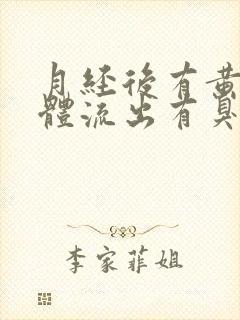 月經後有黃
體流出有臭
李家菲姐